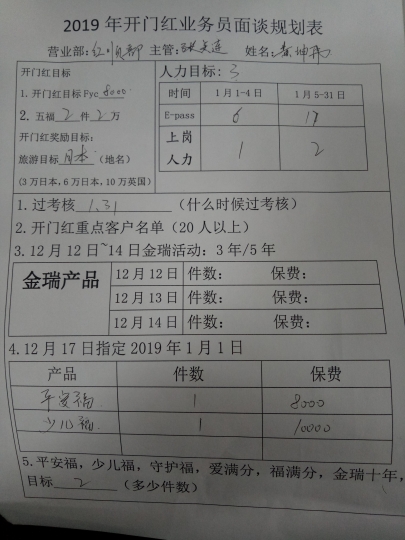 2019年开门红业务员面谈规划表
营业部: 主管: 姓名:
开门红目标
1.开门红目标Fyc 8000
2.五福 2 件 2 万
开门红奖励目标:
旅游目标 日本 (地名)
(3万日本,6万日本,10万英国)
人力目标: 3
时间 1月1-4日 1月5-31日
E-pass 6 17
上岗人力 1 2
1.过考核 1.31 (什么时候过考核)
2.开门红重点客户名单(20人以上)
3.12月12日~14日金瑞活动:3年/5年
金瑞产品
12月12日 件数: 保费:
12月13日 件数: 保费:
12月14日 件数: 保费:
4.12月17日指定2019年1月1日
产品 件数 保费
平安福 1 8000
少儿福 1 10000
5.平安福,少儿福,守护福,爱满分,福满分,金瑞十年,
目标 2 (多少件数)